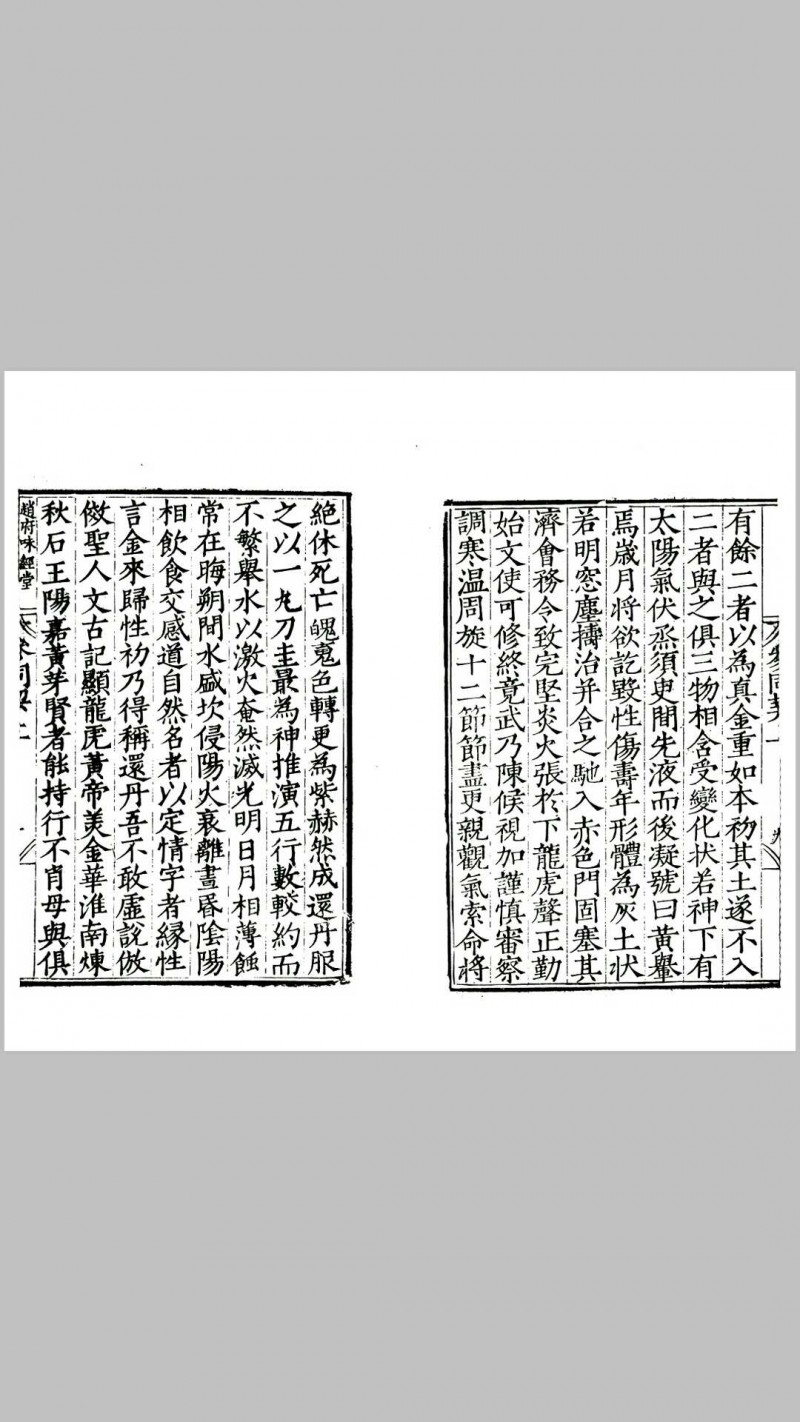 有餘二者以為真金重如本初其土遂不入
二者與之俱三物相含受變化状若神下有
太陽氣伏烝須臾間先液而後凝號曰黃轝
焉歲月將欲訖毀性傷壽年形體為灰土狀
若明窓塵擣治并合之馳入赤色門固塞其
濟會務令致完堅炎火張於下龍虎聲正勤
始文使可修終竟武乃陳候視加謹慎審察
調寒温周旋十二節節盡更親觀氣索命將
絕休死亡魄䰟色轉更為紫赫然成還丹服
之以一丸刀圭最為神推演五行數較約而
不繁舉水以激火奄然滅光明日月相薄蝕
常在晦朔間水盛坎侵陽火衰離晝昏陰陽
相飲食交感道自然名者以定情字者緣性
言金來歸性初乃得稱還丹吾不敢虛說倣
傚聖人文古記顯龍虎黃帝美金華淮南煉
秋石王陽嘉黃芽賢者能持行不肖毋與俱
趙府味經堂